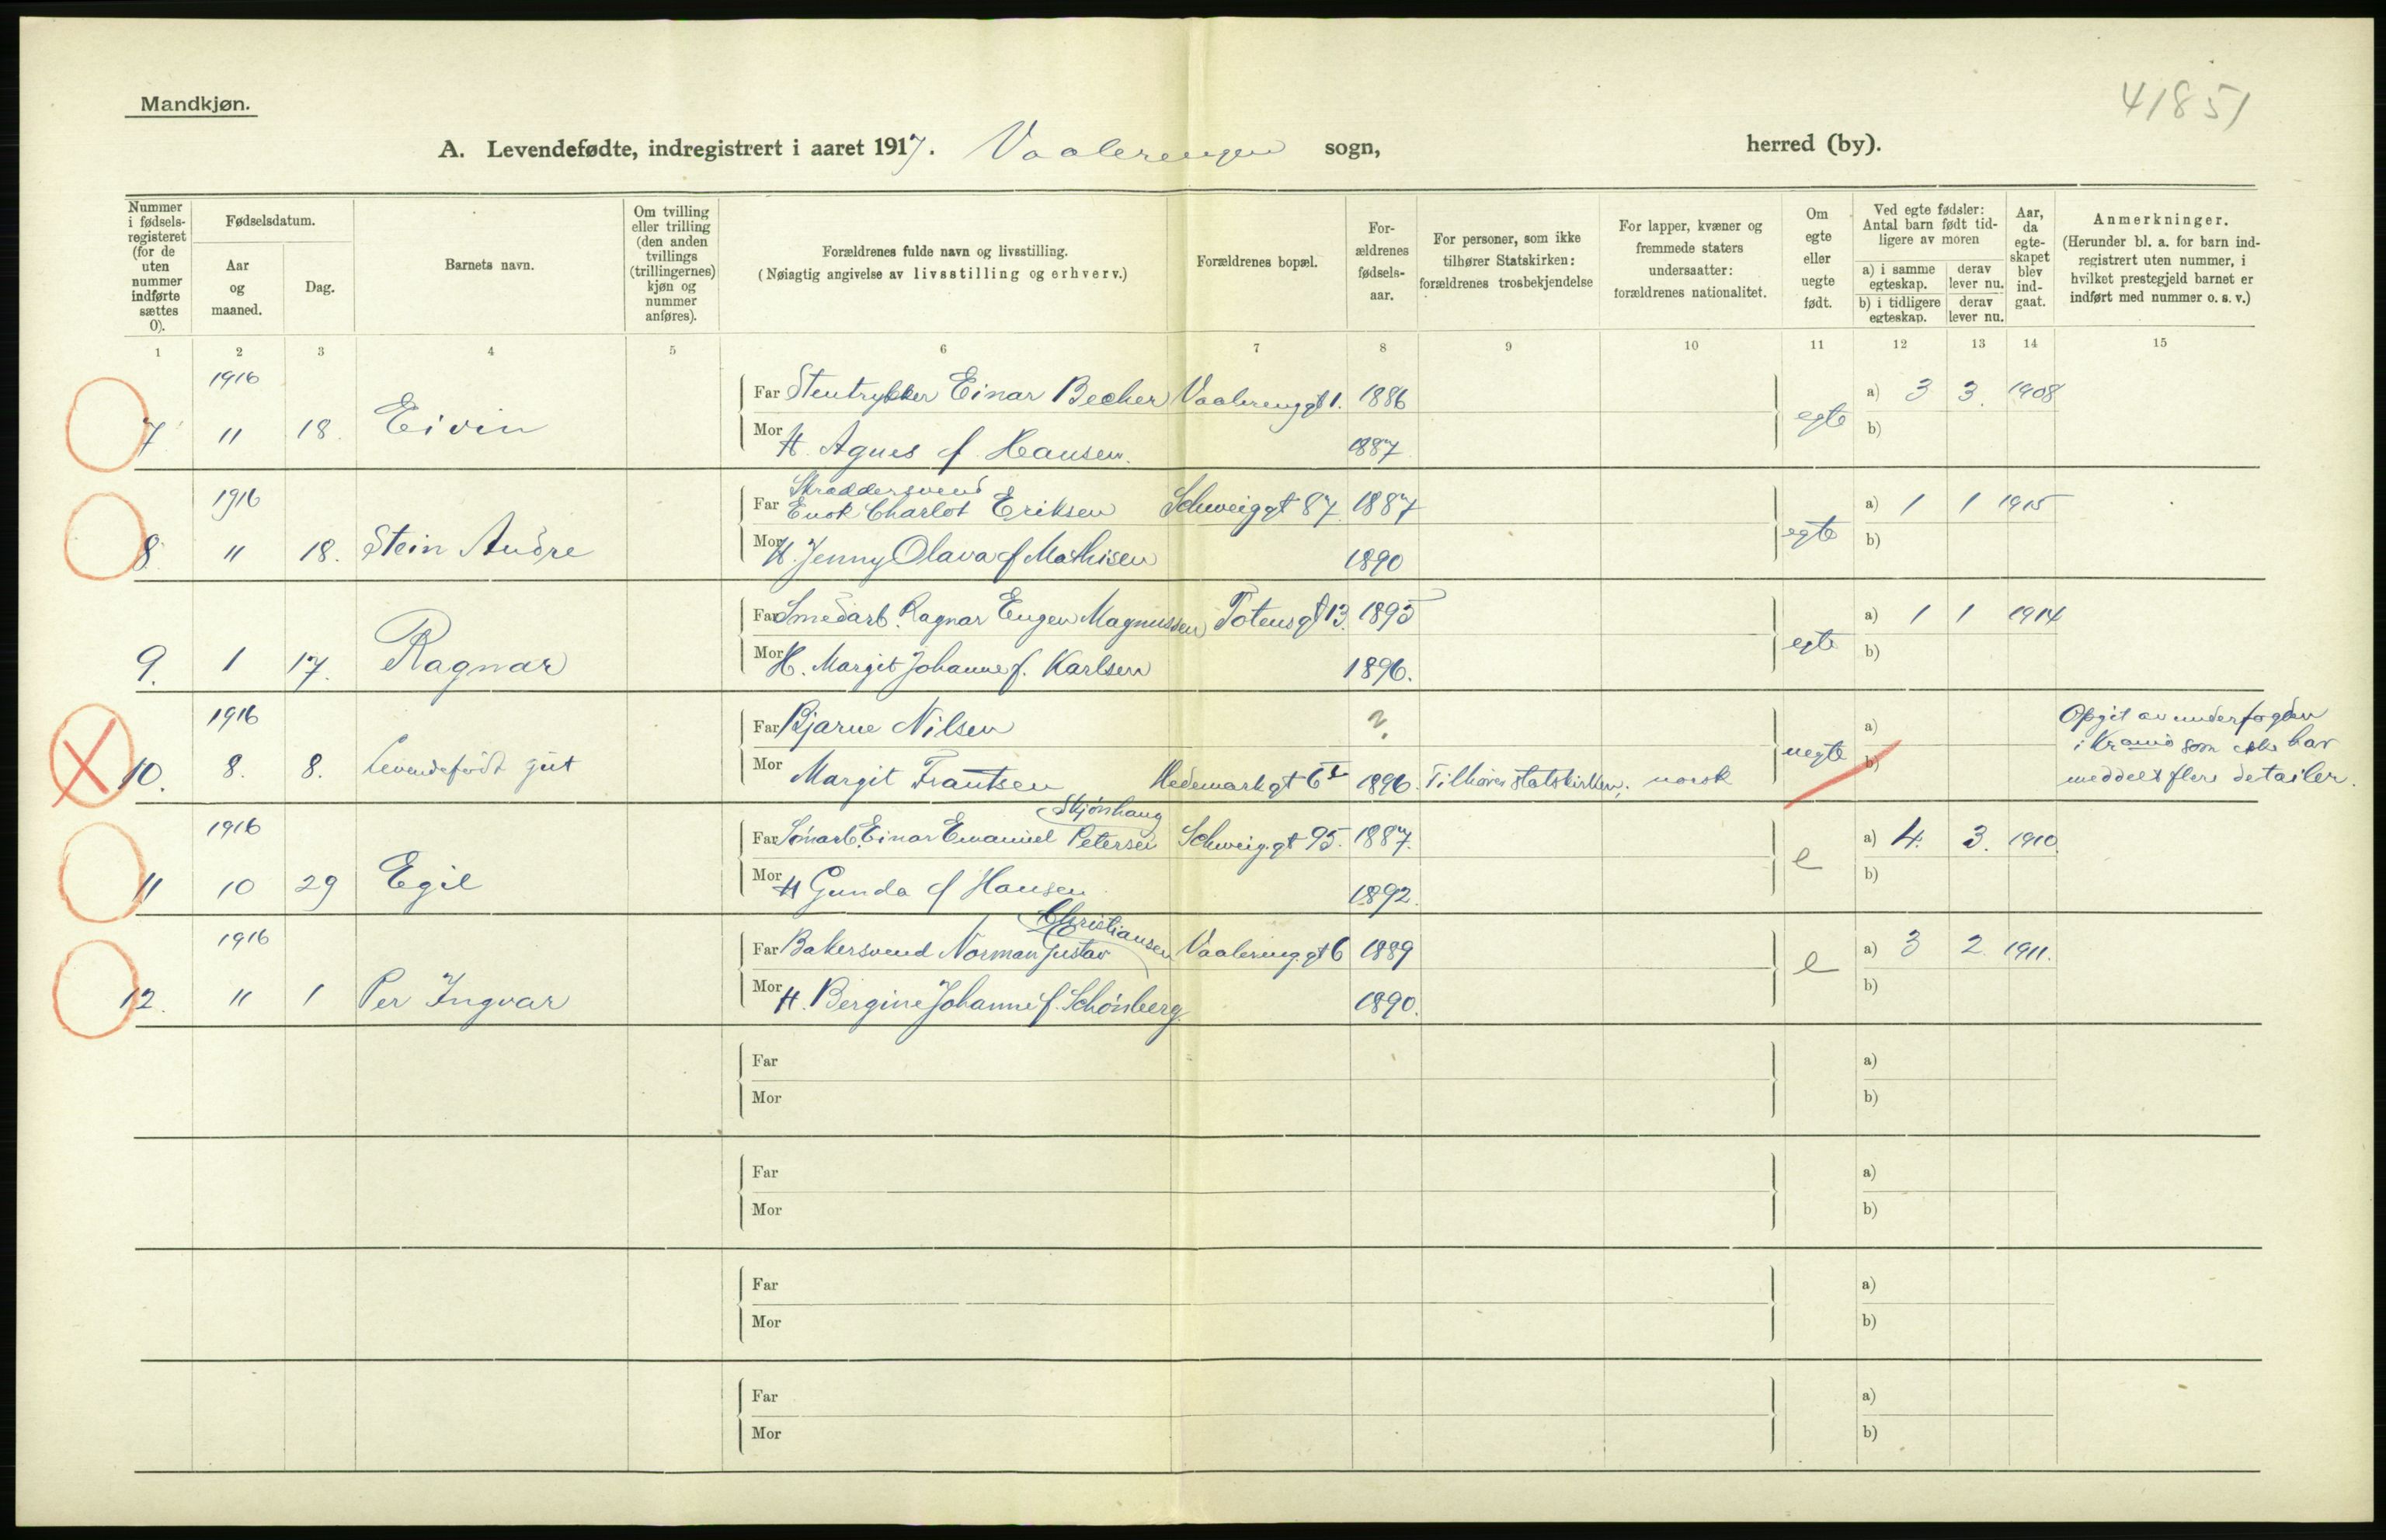 Mandkjøn.
41851
A. Levendefødte, indregistrert i aaret 1917. Vaalerengen sogn, herred (by).
Nummer i fødselsregisteret (for de uten nummer indførte sættes 0).
Fødselsdatum.
Aar og maaned.
Dag.
Barnets navn.
Om tvilling eller trilling (den anden tvillings (trillingernes) kjøn og nummer anføres).
Forældrenes fulde navn og livsstilling.
(Nøiagtig angivelse av livsstilling og erhverv.)
Forældrenes bopæl.
Forældrenes fødselsaar.
For personer, som ikke tilhører Statskirken: forældrenes trosbekjendelse
For lapper, kvæner og fremmede staters undersaatter: forældrenes nationalitet.
Om egte eller uegte født.
Ved egte fødsler: Antal barn født tidligere av moren
a) i samme egteskap. derav lever nu.
b) i tidligere egteskap. derav lever nu.
Aar, da egteskapet blev indgaat.
Anmerkninger.
(Herunder bl. a. for barn indregistrert uten nummer, i hvilket prestegjeld barnet er indført med nummer o. s. v.)
1 2 3 4 5 6 7 8 9 10 11 12 13 14 15
1916
Far Stentrykker Einar Becher Vaalerenggt 1. 1886 a) 3 3. 1908
7 11 18. Eivin egte
Mor H. Agnes f. Hansen. 1887 b)
1916 Skræddersvend
Far Enok Charlot Eriksen Schweiggt 87. 1887 a) 1 1 1915
8. 11 18. Stein Andre egte
Mor H. Jenny Olava f Mathisen 1890 b)
Far Smedarb. Ragnar Eugen Magnussen Totensgt 13. 1895 a) 1 1 1914
9. 1 17. Ragnar egte
Mor H. Margit Johanne f. Karlsen 1896. b)
1916
Far Bjarne Nilsen ? a)
Opgit av underfogden
i Kra som ikke har
meddelt flere detailer.
10. 8. 8. Levendefødt gut uegte
Mor Margit Frantsen Hedemarkgt 6 1896. Tilhører statskirken. norsk b)
1916 Skjønhaug
Far Smarb. Einar Emanuel Petersen Schweig.gt 95. 1887. a) 4. 3. 1910.
11 10 29 Egil e
Mor H Gunda f Hansen 1892. b)
1916 Christiansen
Far Bakersvend Norman Gustav Vaalereng.gt 6 1889 a) 3 2 1911.
12. 11 1 Per Ingvar e
Mor H. Bergine Johanne f. Schönberg. 1890. b)
Far a)
Mor b)
Far a)
Mor b)
Far a)
Mor b)
Far a)
Mor b)